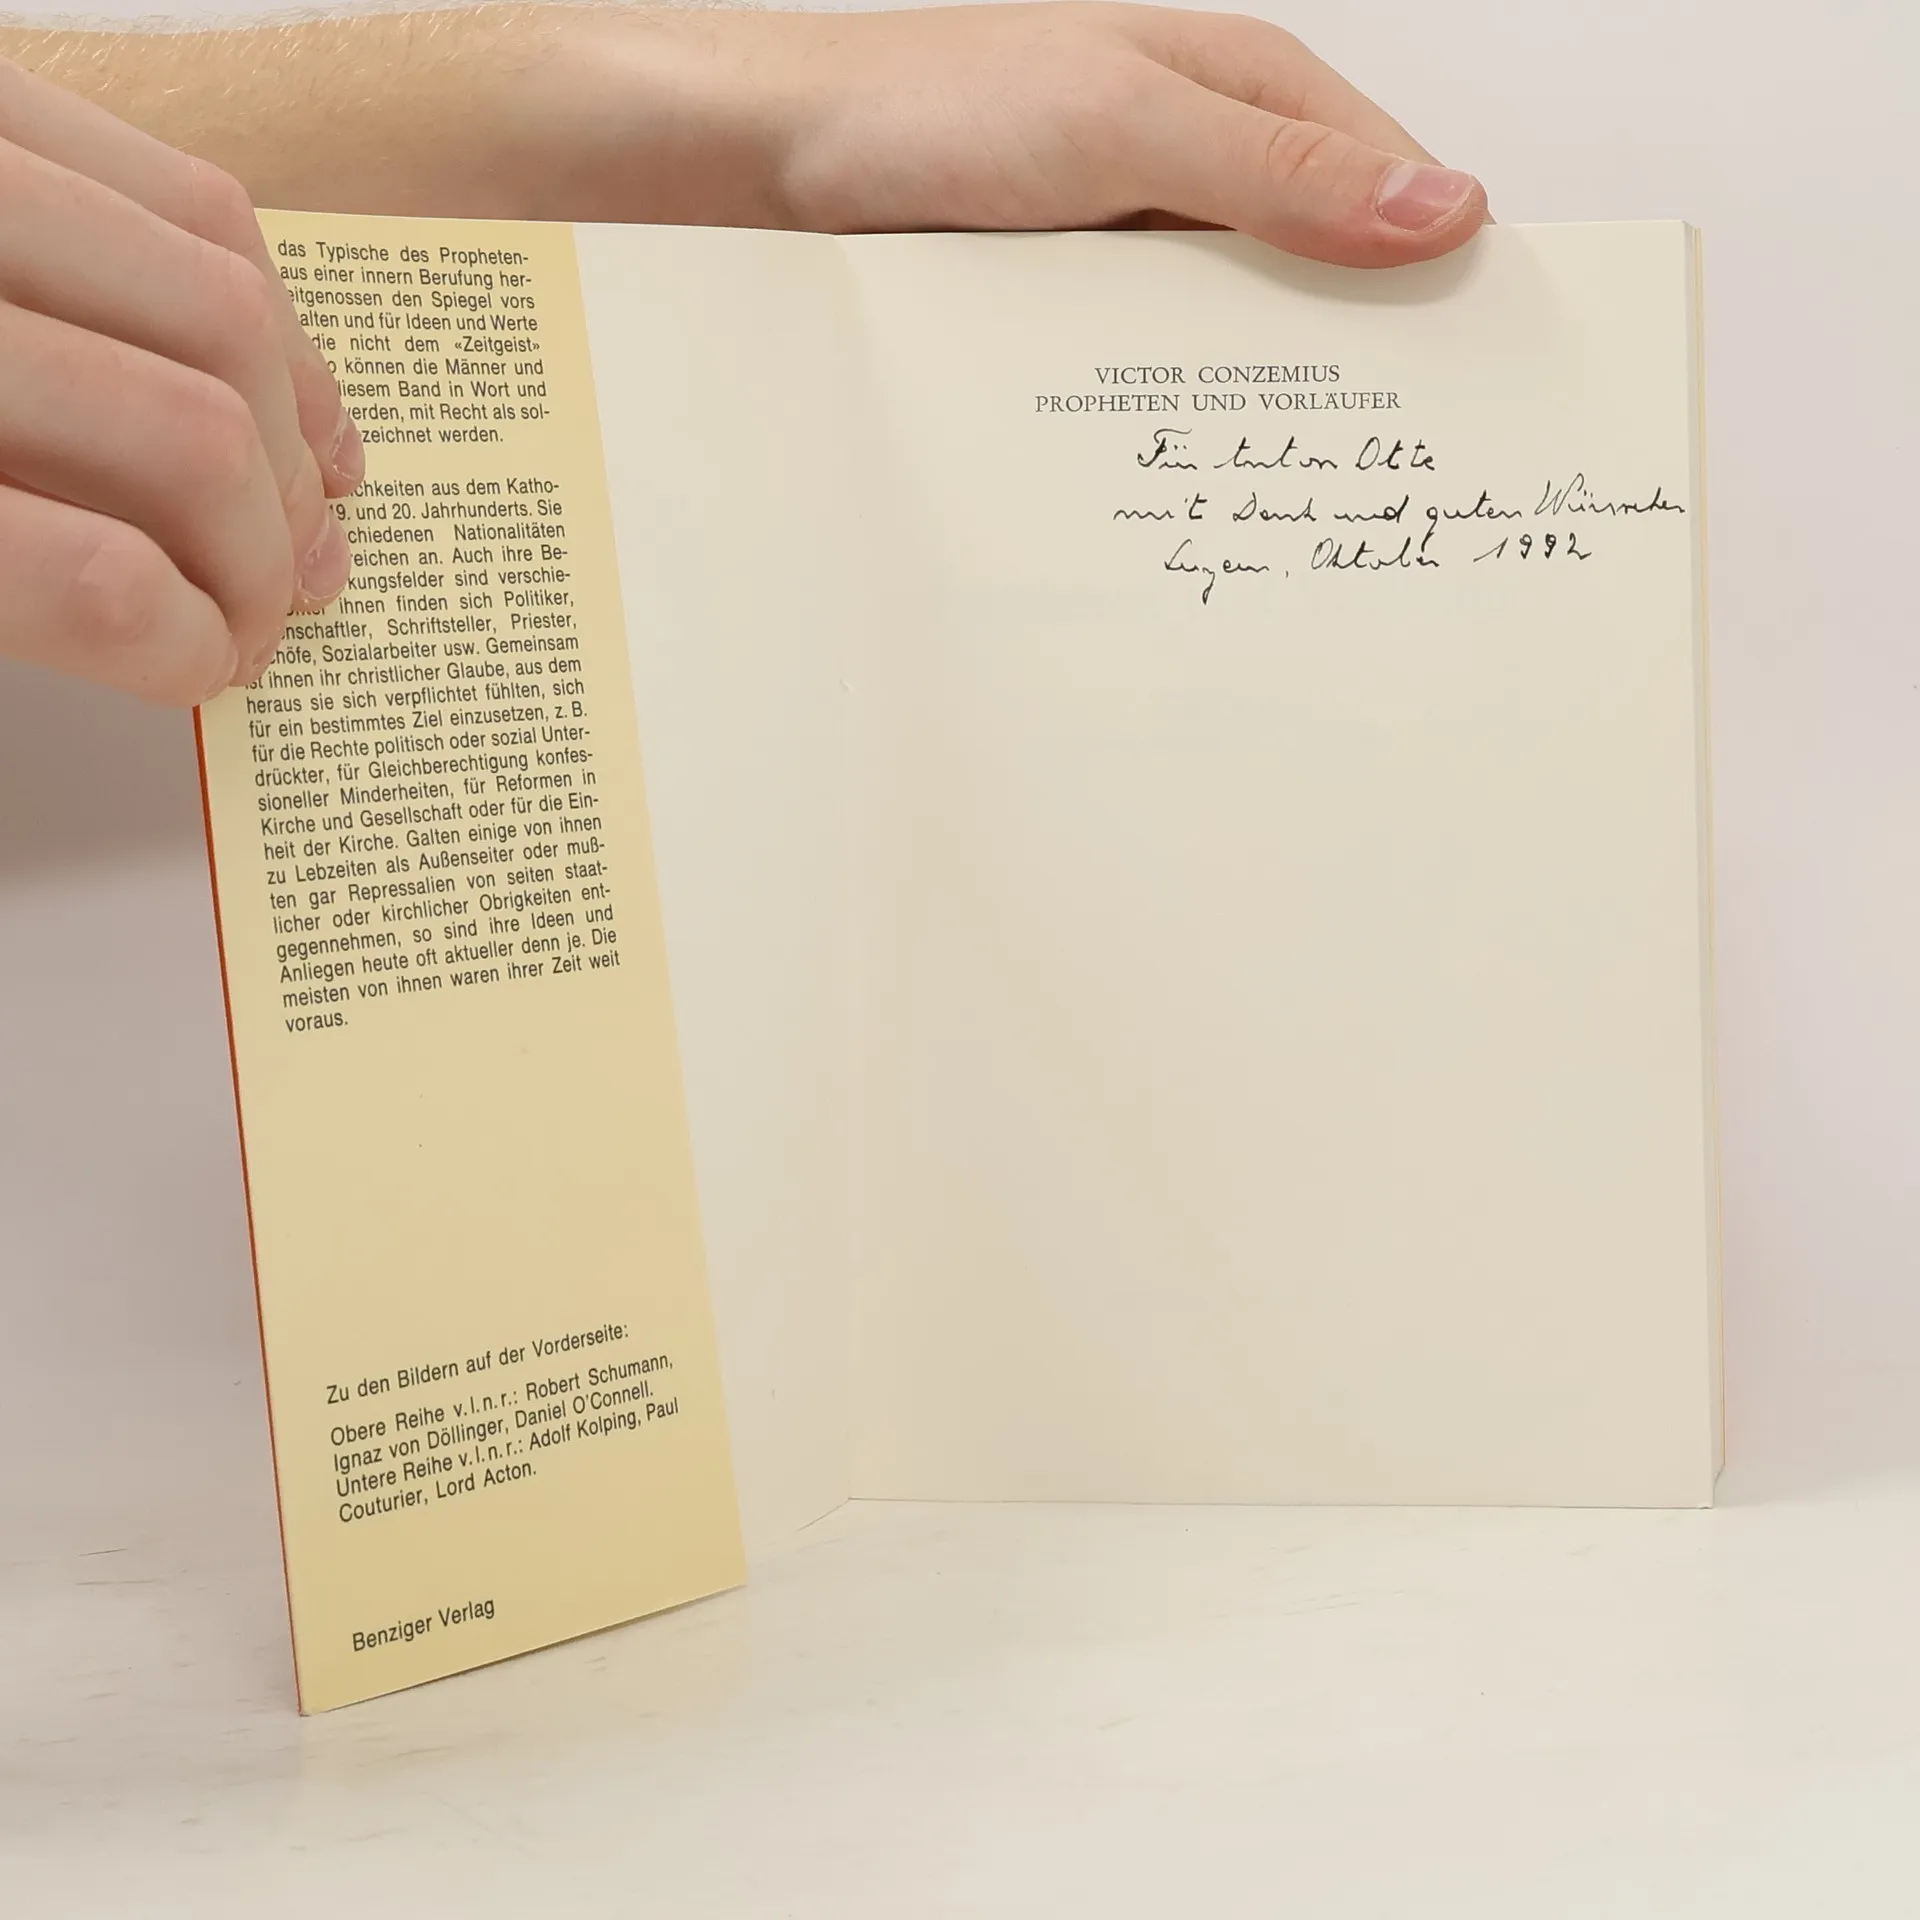 das Typische des Propheten-
aus einer innern Berufung her-
eitgenossen den Spiegel vors
alten und für Ideen und Werte
die nicht dem «Zeitgeist»
o können die Männer und
diesem Band in Wort und
werden, mit Recht als sol-
zeichnet werden.
chkeiten aus dem Katho-
19. und 20. Jahrhunderts. Sie
schiedenen Nationalitäten
reichen an. Auch ihre Be-
kungsfelder sind verschie-
ihnen finden sich Politiker,
enschaftler, Schriftsteller, Priester,
chöfe, Sozialarbeiter usw. Gemeinsam
ist ihnen ihr christlicher Glaube, aus dem
heraus sie sich verpflichtet fühlten, sich
für ein bestimmtes Ziel einzusetzen, z. B.
für die Rechte politisch oder sozial Unter-
drückter, für Gleichberechtigung konfes-
sioneller Minderheiten, für Reformen in
Kirche und Gesellschaft oder für die Ein-
heit der Kirche. Galten einige von ihnen
zu Lebzeiten als Außenseiter oder muß-
ten gar Repressalien von seiten staat-
licher oder kirchlicher Obrigkeiten ent-
gegennehmen, so sind ihre Ideen und
Anliegen heute oft aktueller denn je. Die
meisten von ihnen waren ihrer Zeit weit
voraus.
Zu den Bildern auf der Vorderseite:
Obere Reihe v.l.n.r.: Robert Schumann,
Ignaz von Döllinger, Daniel O'Connell.
Untere Reihe v.l.n.r.: Adolf Kolping, Paul
Couturier, Lord Acton.
Benziger Verlag
VICTOR CONZEMIUS
PROPHETEN UND VORLÄUFER
Für Anton Otte
mit Dank und guten Wünschen
Luzern, Oktober 1992